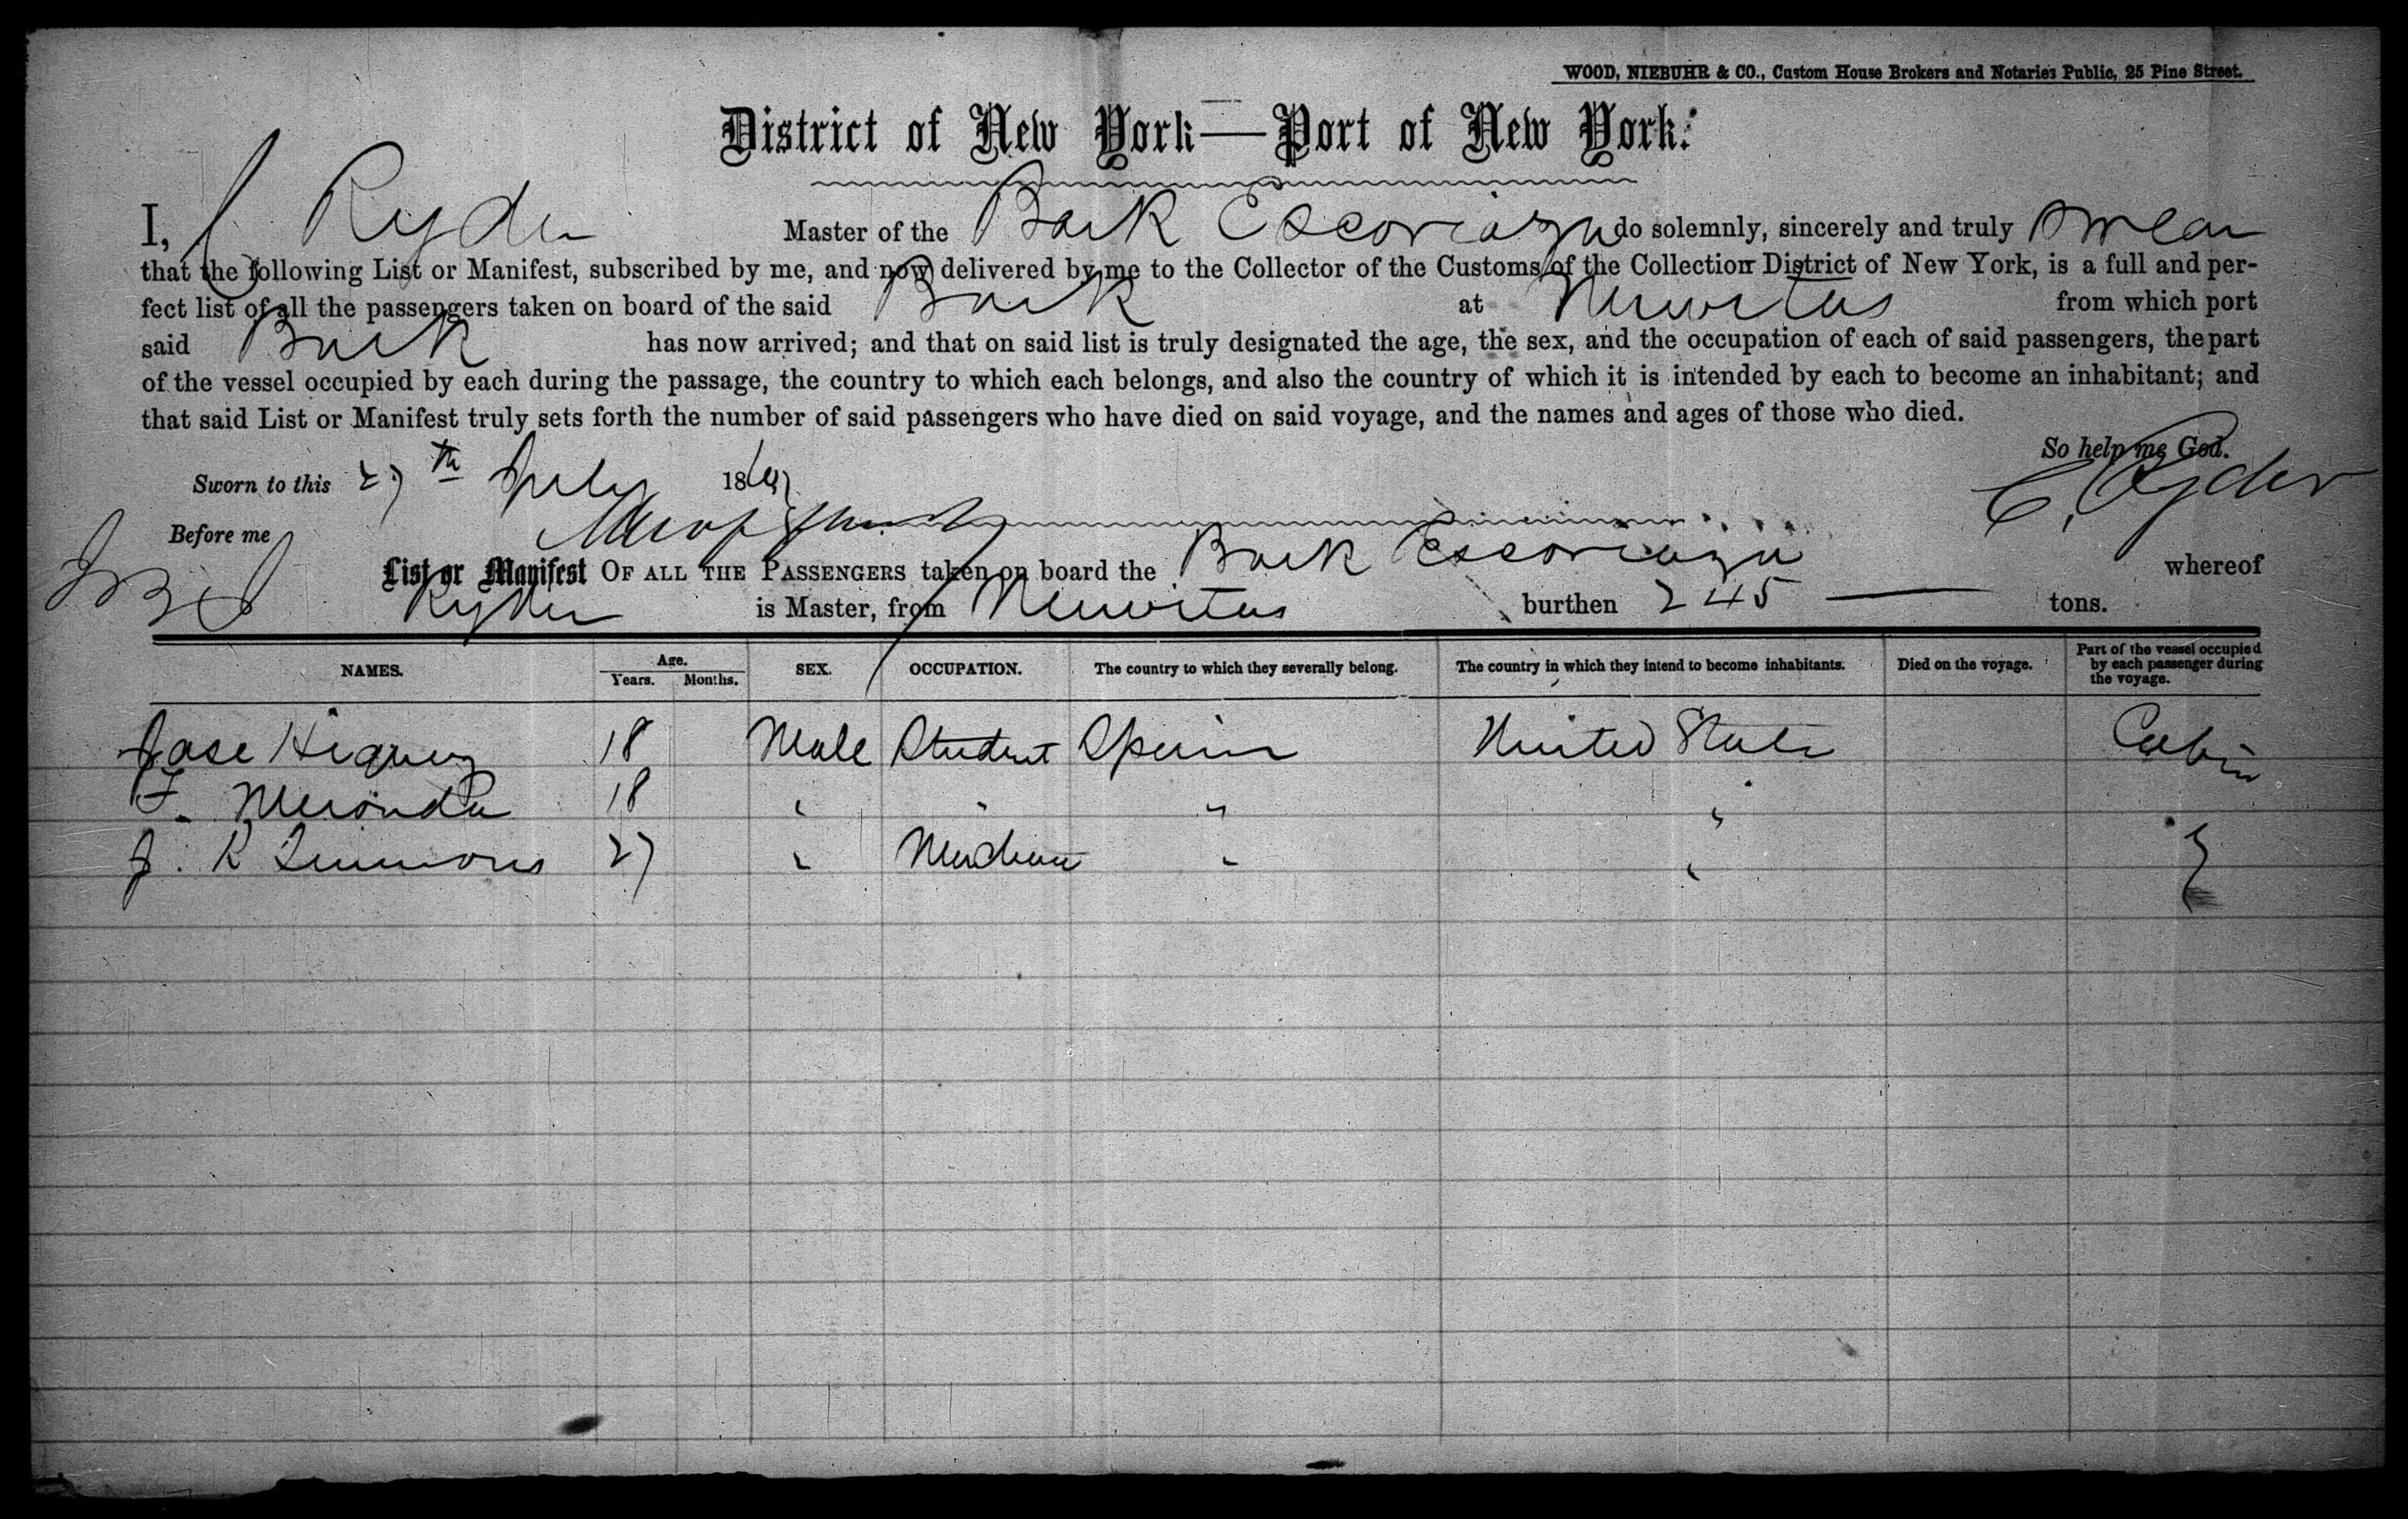 WOOD, NIEBUHR & CO., Custom House Brokers and Notaries Public, 25 Pine Street.
District of New York—Port of New York.
I, C Ryder Master of the Bark Escoriaza do solemnly, sincerely and truly swear
that the following List or Manifest, subscribed by me, and now delivered by me to the Collector of the Customs of the Collection District of New York, is a full and per-
fect list of all the passengers taken on board of the said Bark at Nuevitas from which port
said Bark has now arrived; and that on said list is truly designated the age, the sex, and the occupation of each of said passengers, the part
of the vessel occupied by each during the passage, the country to which each belongs, and also the country of which it is intended by each to become an inhabitant; and
that said List or Manifest truly sets forth the number of said passengers who have died on said voyage, and the names and ages of those who died.
So help me God.
Sworn to this 27th July 186
C. Ryder
Before me
List or Manifest OF ALL THE PASSENGERS taken on board the Bark Escoriaza whereof
Ryder is Master, from Nuevitas burthen 245 — tons.
NAMES. Age. Years. Months. SEX. OCCUPATION. The country to which they severally belong. The country in which they intend to become inhabitants. Died on the voyage. Part of the vessel occupied by each passenger during the voyage.
Jose 18 Male Student Spain United States Cabin
F. Meronda 18 " " " "
J. R Simmons 27 " " "